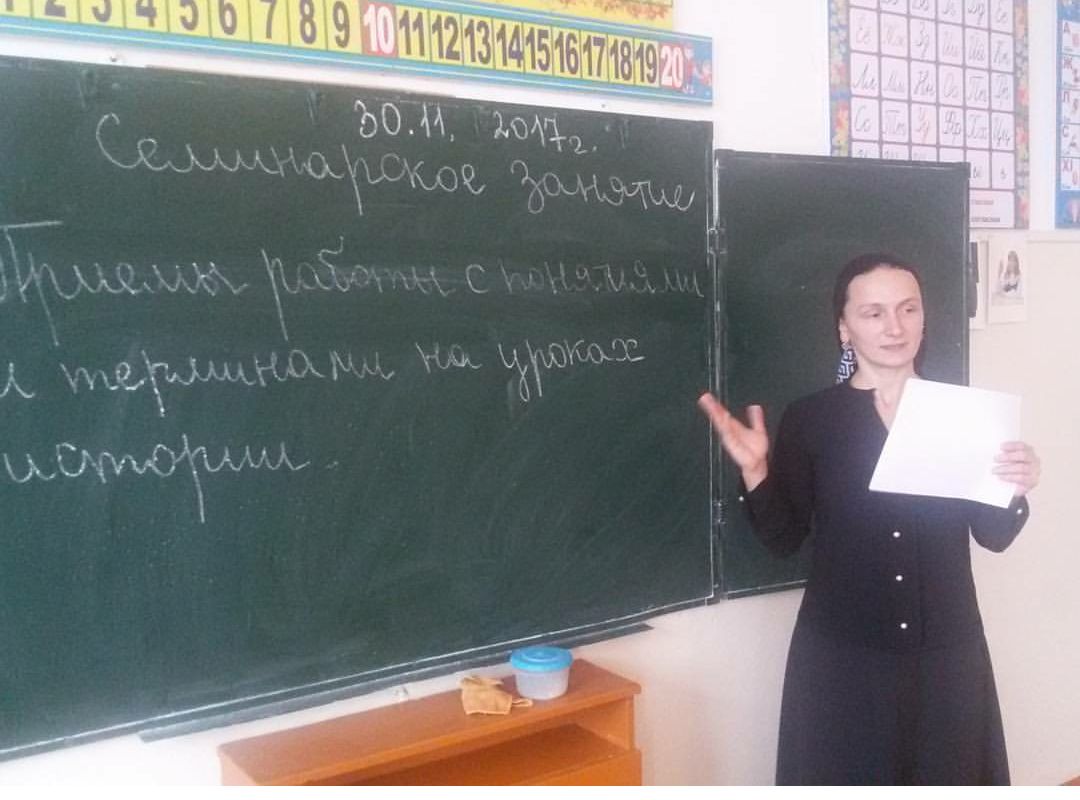 1 2 3 4 5 6 7 8 9 10 11 12 13 14 15 16 17 18 19 20
30.11. 2017г.
Семинарское занятие
Приемы работы с понятиями
и терминами на уроках
истории.
Ее Жж Зз Ии Йй Кк
Лл Мм Нн Оо Пп Рр
Сс Тт Уу Фф Хх Цц